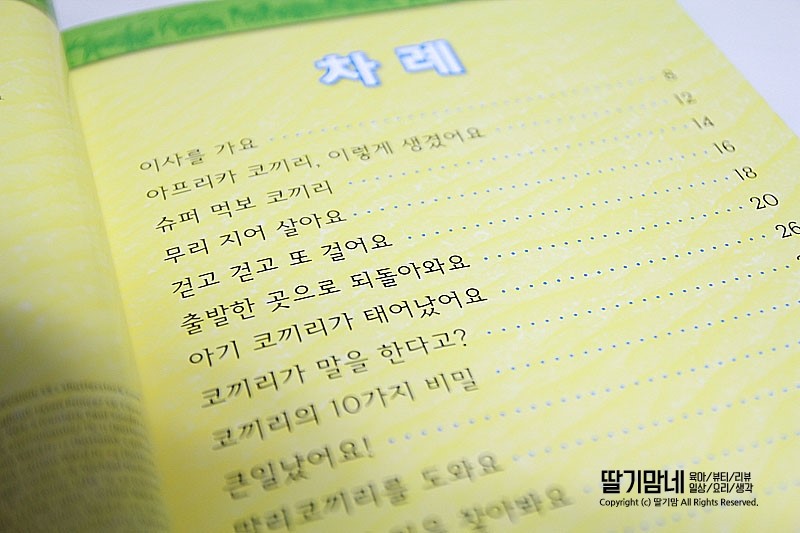 차 례
이사를 가요 8
아프리카 코끼리, 이렇게 생겼어요 12
슈퍼 먹보 코끼리 14
무리 지어 살아요 16
걷고 걷고 또 걸어요 18
출발한 곳으로 되돌아와요 20
아기 코끼리가 태어났어요 26
코끼리가 말을 한다고?
코끼리의 10가지 비밀
큰일났어요!
딸리코끼리를 도와요
찾아봐요
딸기맘네 육아/뷰티/리뷰
일상/요리/생각
Copyright (c) 딸기맘 All Rights Reserved.